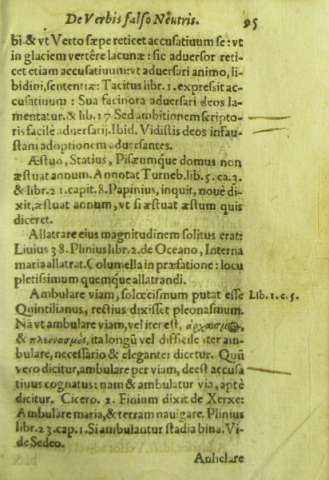 De Verbis falso Neutris. 95
bi & vt Verto sæpe reticet accusatiuum se: vt
in glaciem vertêre lacunæ: sic aduersor reti-
cet etiam accusatiuum vt aduersari animo, li-
bidini, sententiæ: Tacitus lib. 1. expressit ac-
cusatiuum: Sua facinora aduersari deos la-
mentatur. & lib. 17 Sed ambitionem scripto-
ris facilè aduersarij. Ibid. Vidistis deos infau-
stam adoptionem aduersantes.
Æstuo, Statius, Pisæumque domus non
æstuat annum. Annotat Turneb. lib. 5. ca. 2.
& libr. 21. capit. 8. Papinius, inquit, nouè di-
xit, æstuat annum, vt si æstuat æstum quis
diceret.
Allatrare eius magnitudinem solitus erat:
Liuius 38. Plinius libr. 2. de Oceano, Interna
maria allatrat. Columella in præfatione: locu
pletissimum quemque allatrandi.
Ambulare viam, solœcismum putat esse
Lib. 1. c. 5.
Quintilianus, rectius dixisset pleonasmum.
Nā vt ambulare viam, vel iter est, ἀρχαϊσμὸς,
& πλεονασμὸς, ita longū vel difficile iter am-
bulare, necessario & eleganter dicetur. Quū
vero dicitur, ambulare per viam, deest accusa
tiuus cognatus: nam & ambulatur via, aptè
dicitur. Cicero. 2. Finium dixit de Xerxe:
Ambulare maria, & terram nauigare. Plinius
libr. 23. cap. 1. Si ambulantur stadia bina. Vi-
de Sedeo.
Anhelare